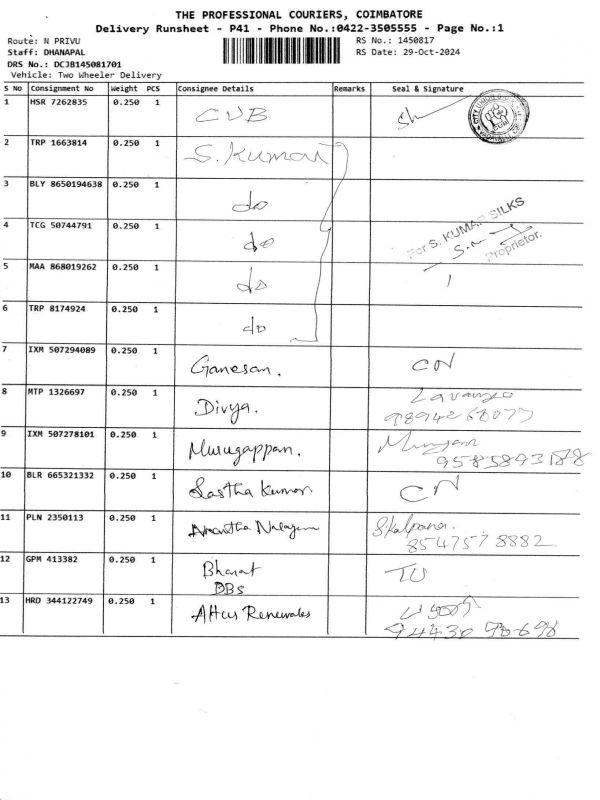 THE PROFESSIONAL COURIERS, COIMBATORE
Delivery Runsheet - P41 - Phone No.:0422-3505555 - Page No.:1
Route: N PRIVU RS No.: 1450817
Staff: DHANAPAL RS Date: 29-Oct-2024
DRS No.: DCJB145081701
Vehicle: Two Wheeler Delivery
S No Consignment No Weight PCS Consignee Details Remarks Seal & Signature
1 HSR 7262835 0.250 1 CUB
2 TRP 1663814 0.250 1 S. Kumar
3 BLY 8650194638 0.250 1 do
4 TCG 50744791 0.250 1 do For S. KUMAR SILKS
Proprietor.
5 MAA 868019262 0.250 1 do
6 TRP 8174924 0.250 1 do
7 IXM 507294089 0.250 1 Ganesan. CN
8 MTP 1326697 0.250 1 Divya. Lavanya
9 IXM 507278101 0.250 1 Murugappan.
10 BLR 665321332 0.250 1 Sastha Kumar CN
11 PLN 2350113 0.250 1 S.Kalpana.
8547578882
12 GPM 413382 0.250 1 Bharat
DBS
13 HRD 344122749 0.250 1